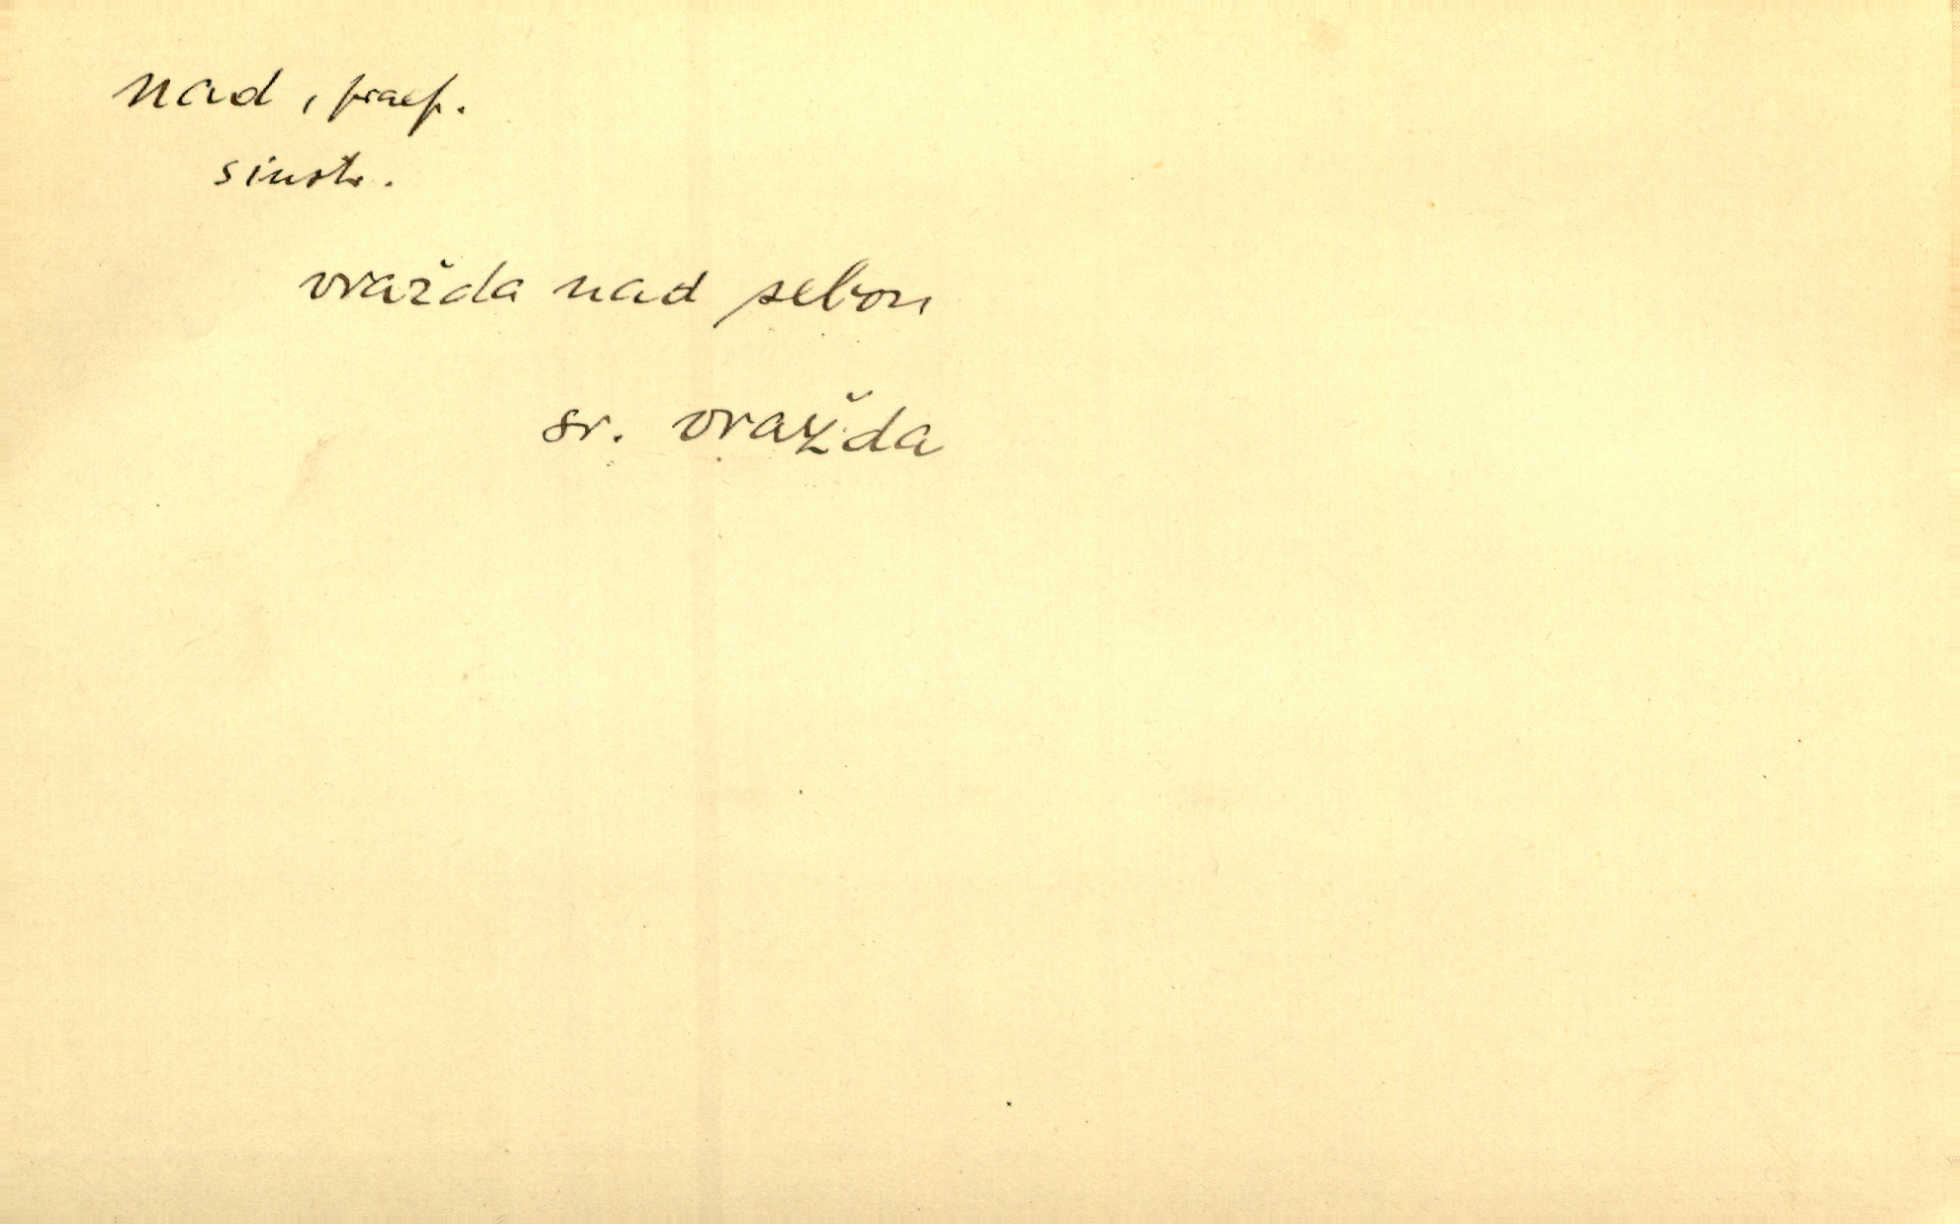 nad, praep.
s instr.
vražda nad sebou
sr. vražda